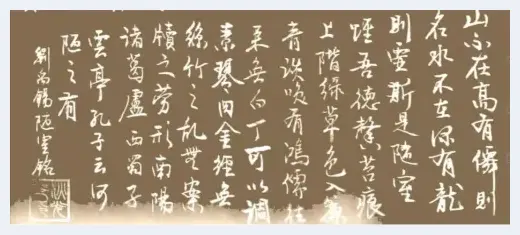 山不在高有僊則
名水不在深有龍
則靈斯是陋室
唯吾德馨苔痕
上階緑草色入簾
青談笑有鴻儒往
来無白丁可以調
素琴閲金經無
絲竹之乱無案
牘之劳形南陽
諸葛盧西蜀子
雲亭孔子云何
陋之有
劉禹錫陋室銘